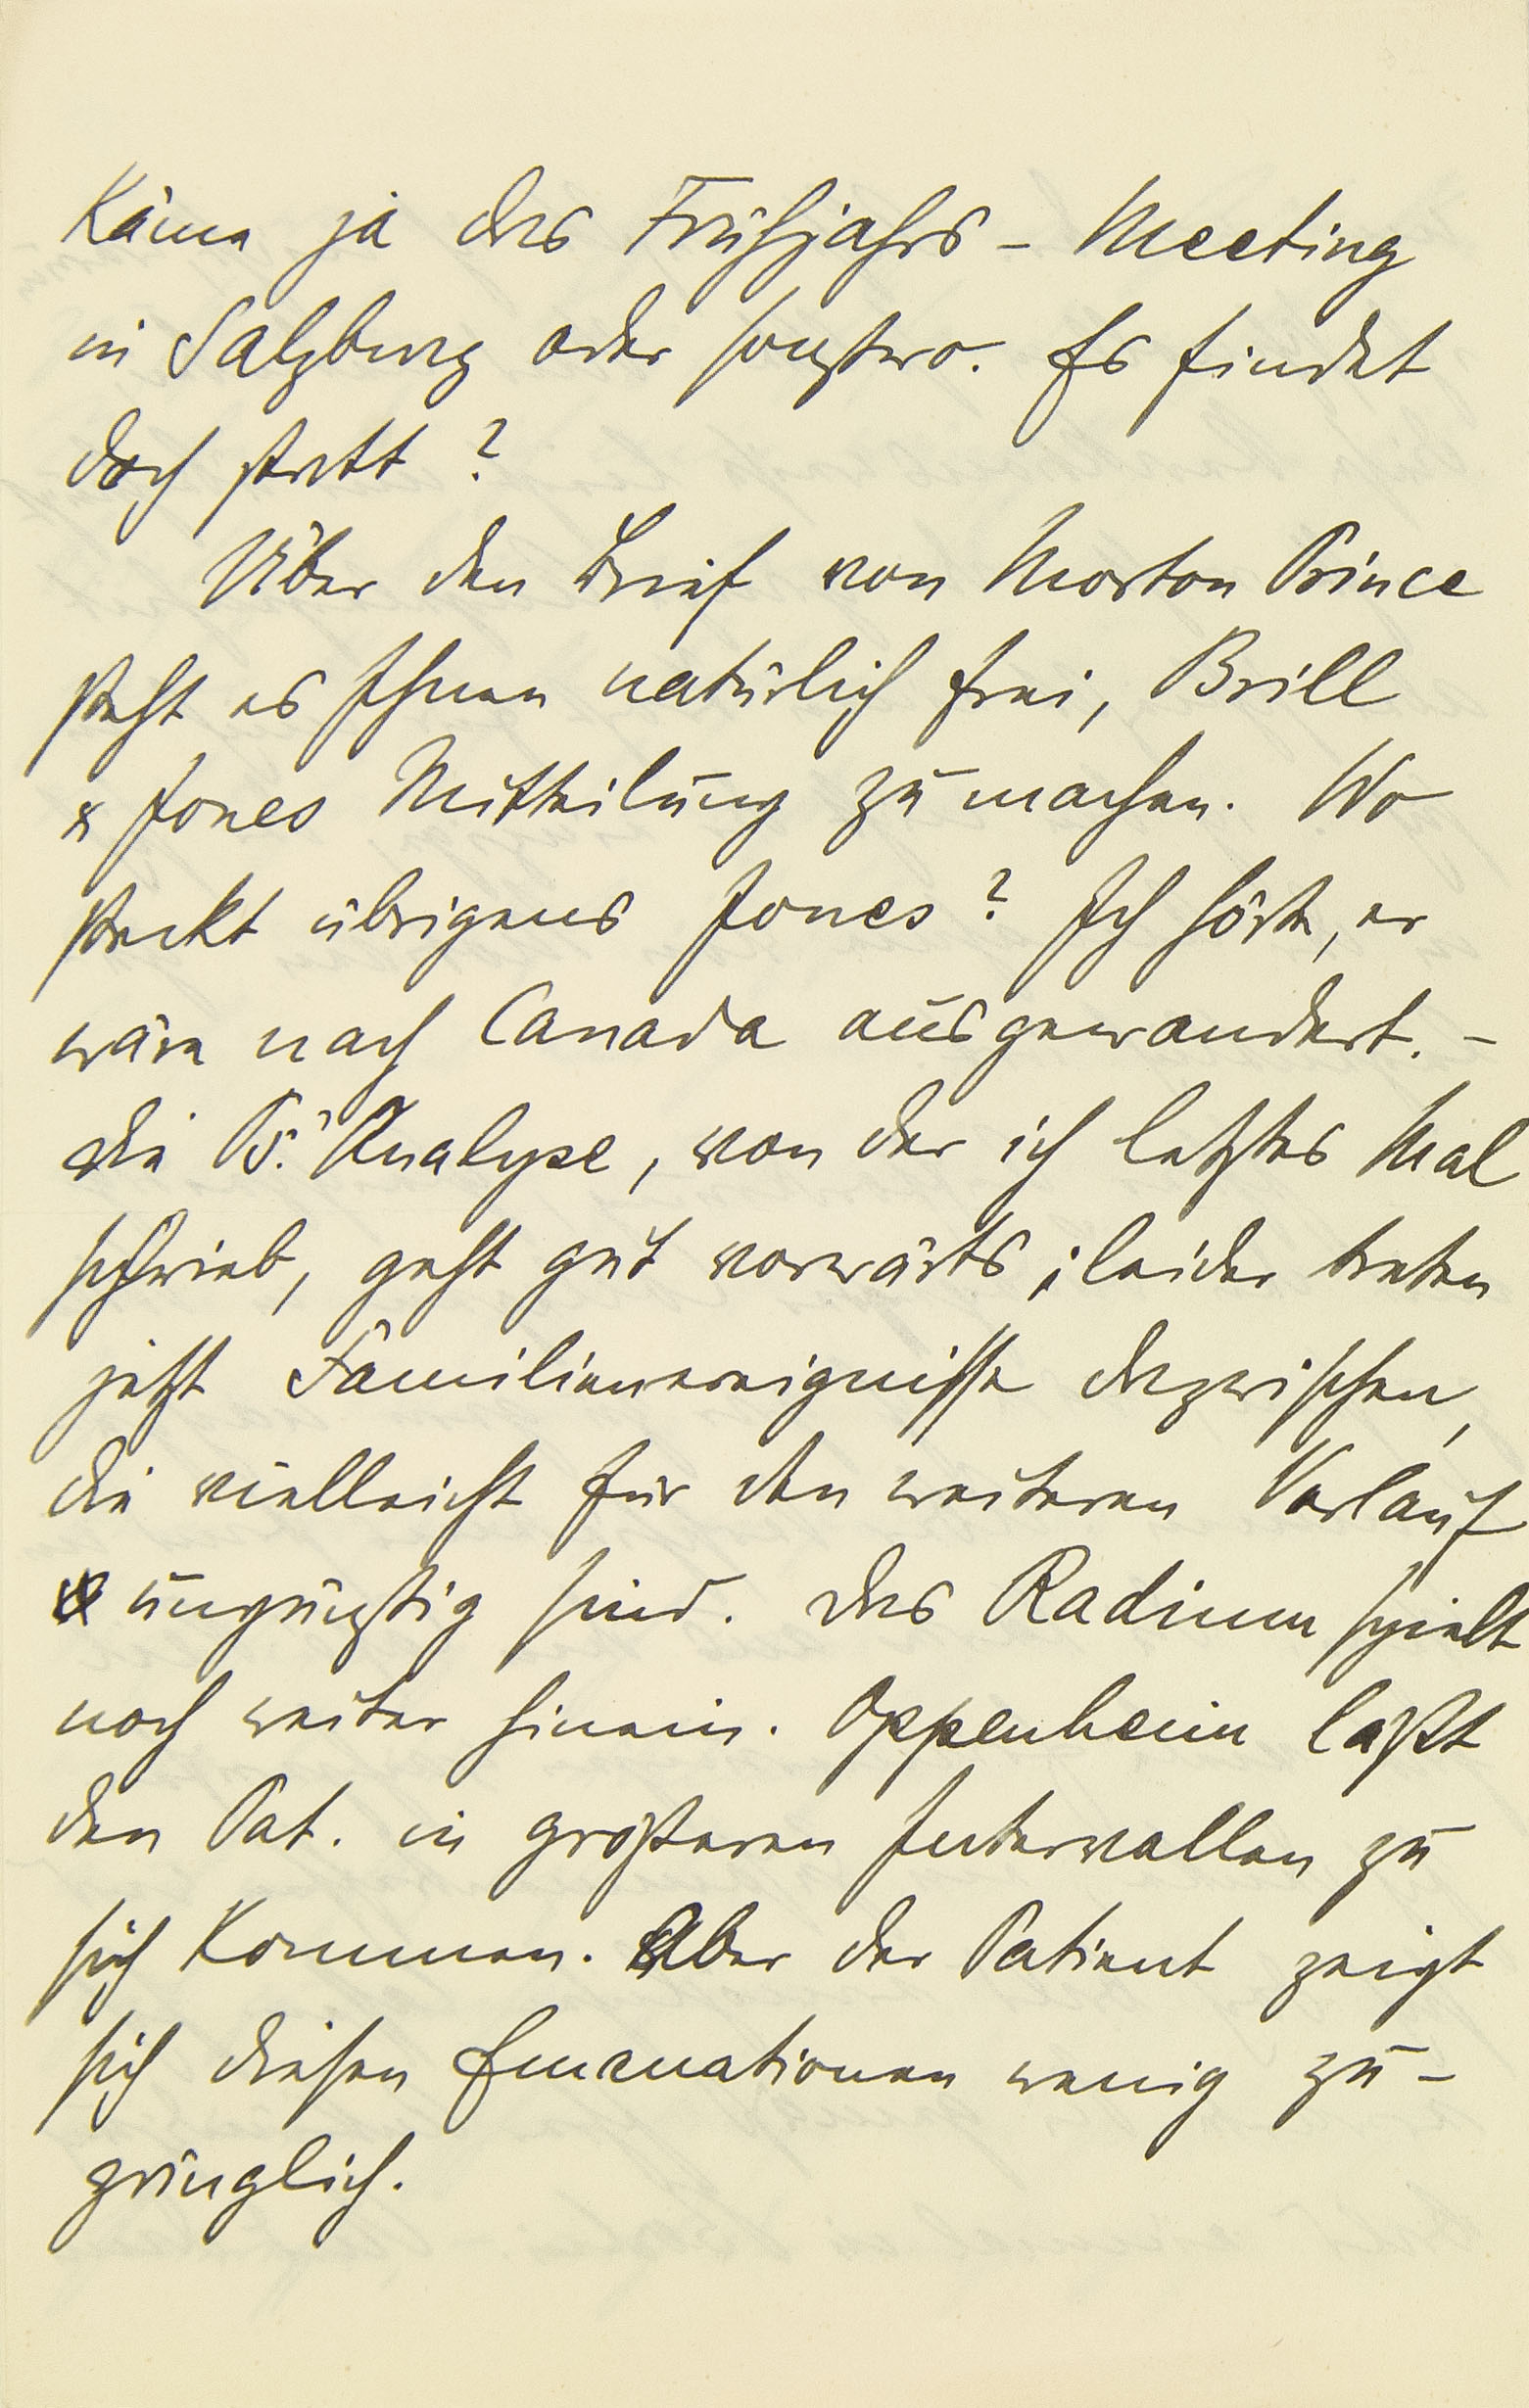 käme ja das Frühjahrs - Meeting
in Salzburg oder sonstwo. Es findet
doch statt?
Über den Brief von Morton Prince
steht es Ihnen natürlich frei, Brill
& Jones Mitteilung zu machen. Wo
steckt übrigens Jones? Ich hörte, er
wäre nach Canada ausgewandert. -
Die Ps. Analyse, von der ich letztes Mal
schrieb, geht gut vorwärts; leider treten
jetzt Familienereignisse dazwischen,
die vielleicht für den weiteren Verlauf
ungünstig sind. Das Radium spielt
noch weiter hinein. Oppenheim läßt
den Pat. in größeren Intervallen zu
sich kommen. Aber der Patient zeigt
sich diesen Emanationen wenig zu-
gänglich.